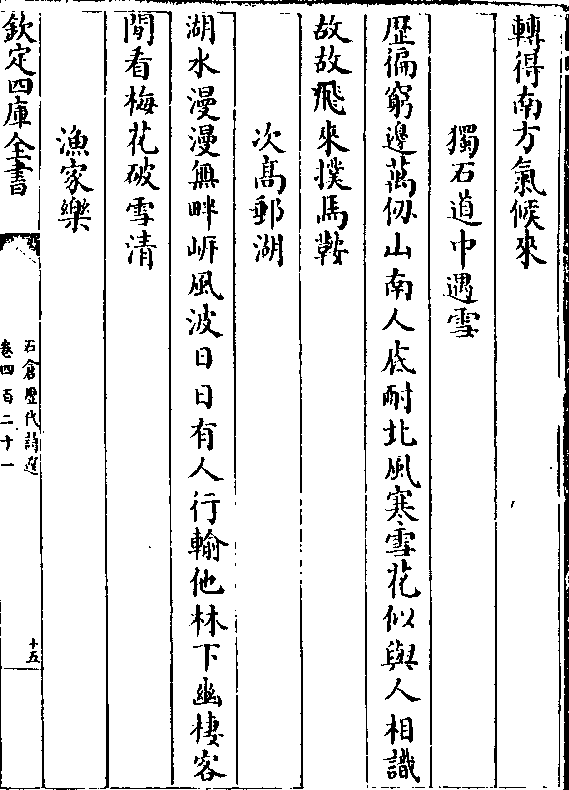 轉得南方氣候來
獨石道中遇雪
歴徧窮邊萬仭山南人底耐北風寒雪花似與人相識
故故飛來撲馬鞍
次髙郵湖
湖水漫漫無畔㟁風波日日有人行輸他林下幽棲客
閒看梅花破雪清
漁家樂
欽定四庫全書
石倉歷代詩選
卷四百二十一
十五